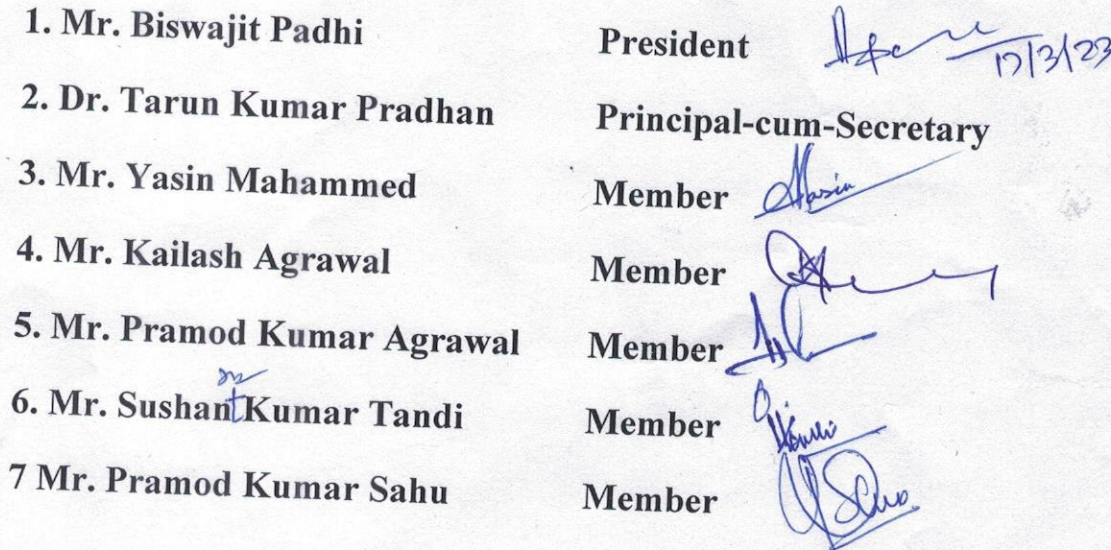 1. Mr. Biswajit Padhi President 17/3/23
2. Dr. Tarun Kumar Pradhan Principal-cum-Secretary
3. Mr. Yasin Mahammed Member
4. Mr. Kailash Agrawal Member
5. Mr. Pramod Kumar Agrawal Member
6. Mr. Sushant Kumar Tandi Member
7 Mr. Pramod Kumar Sahu Member